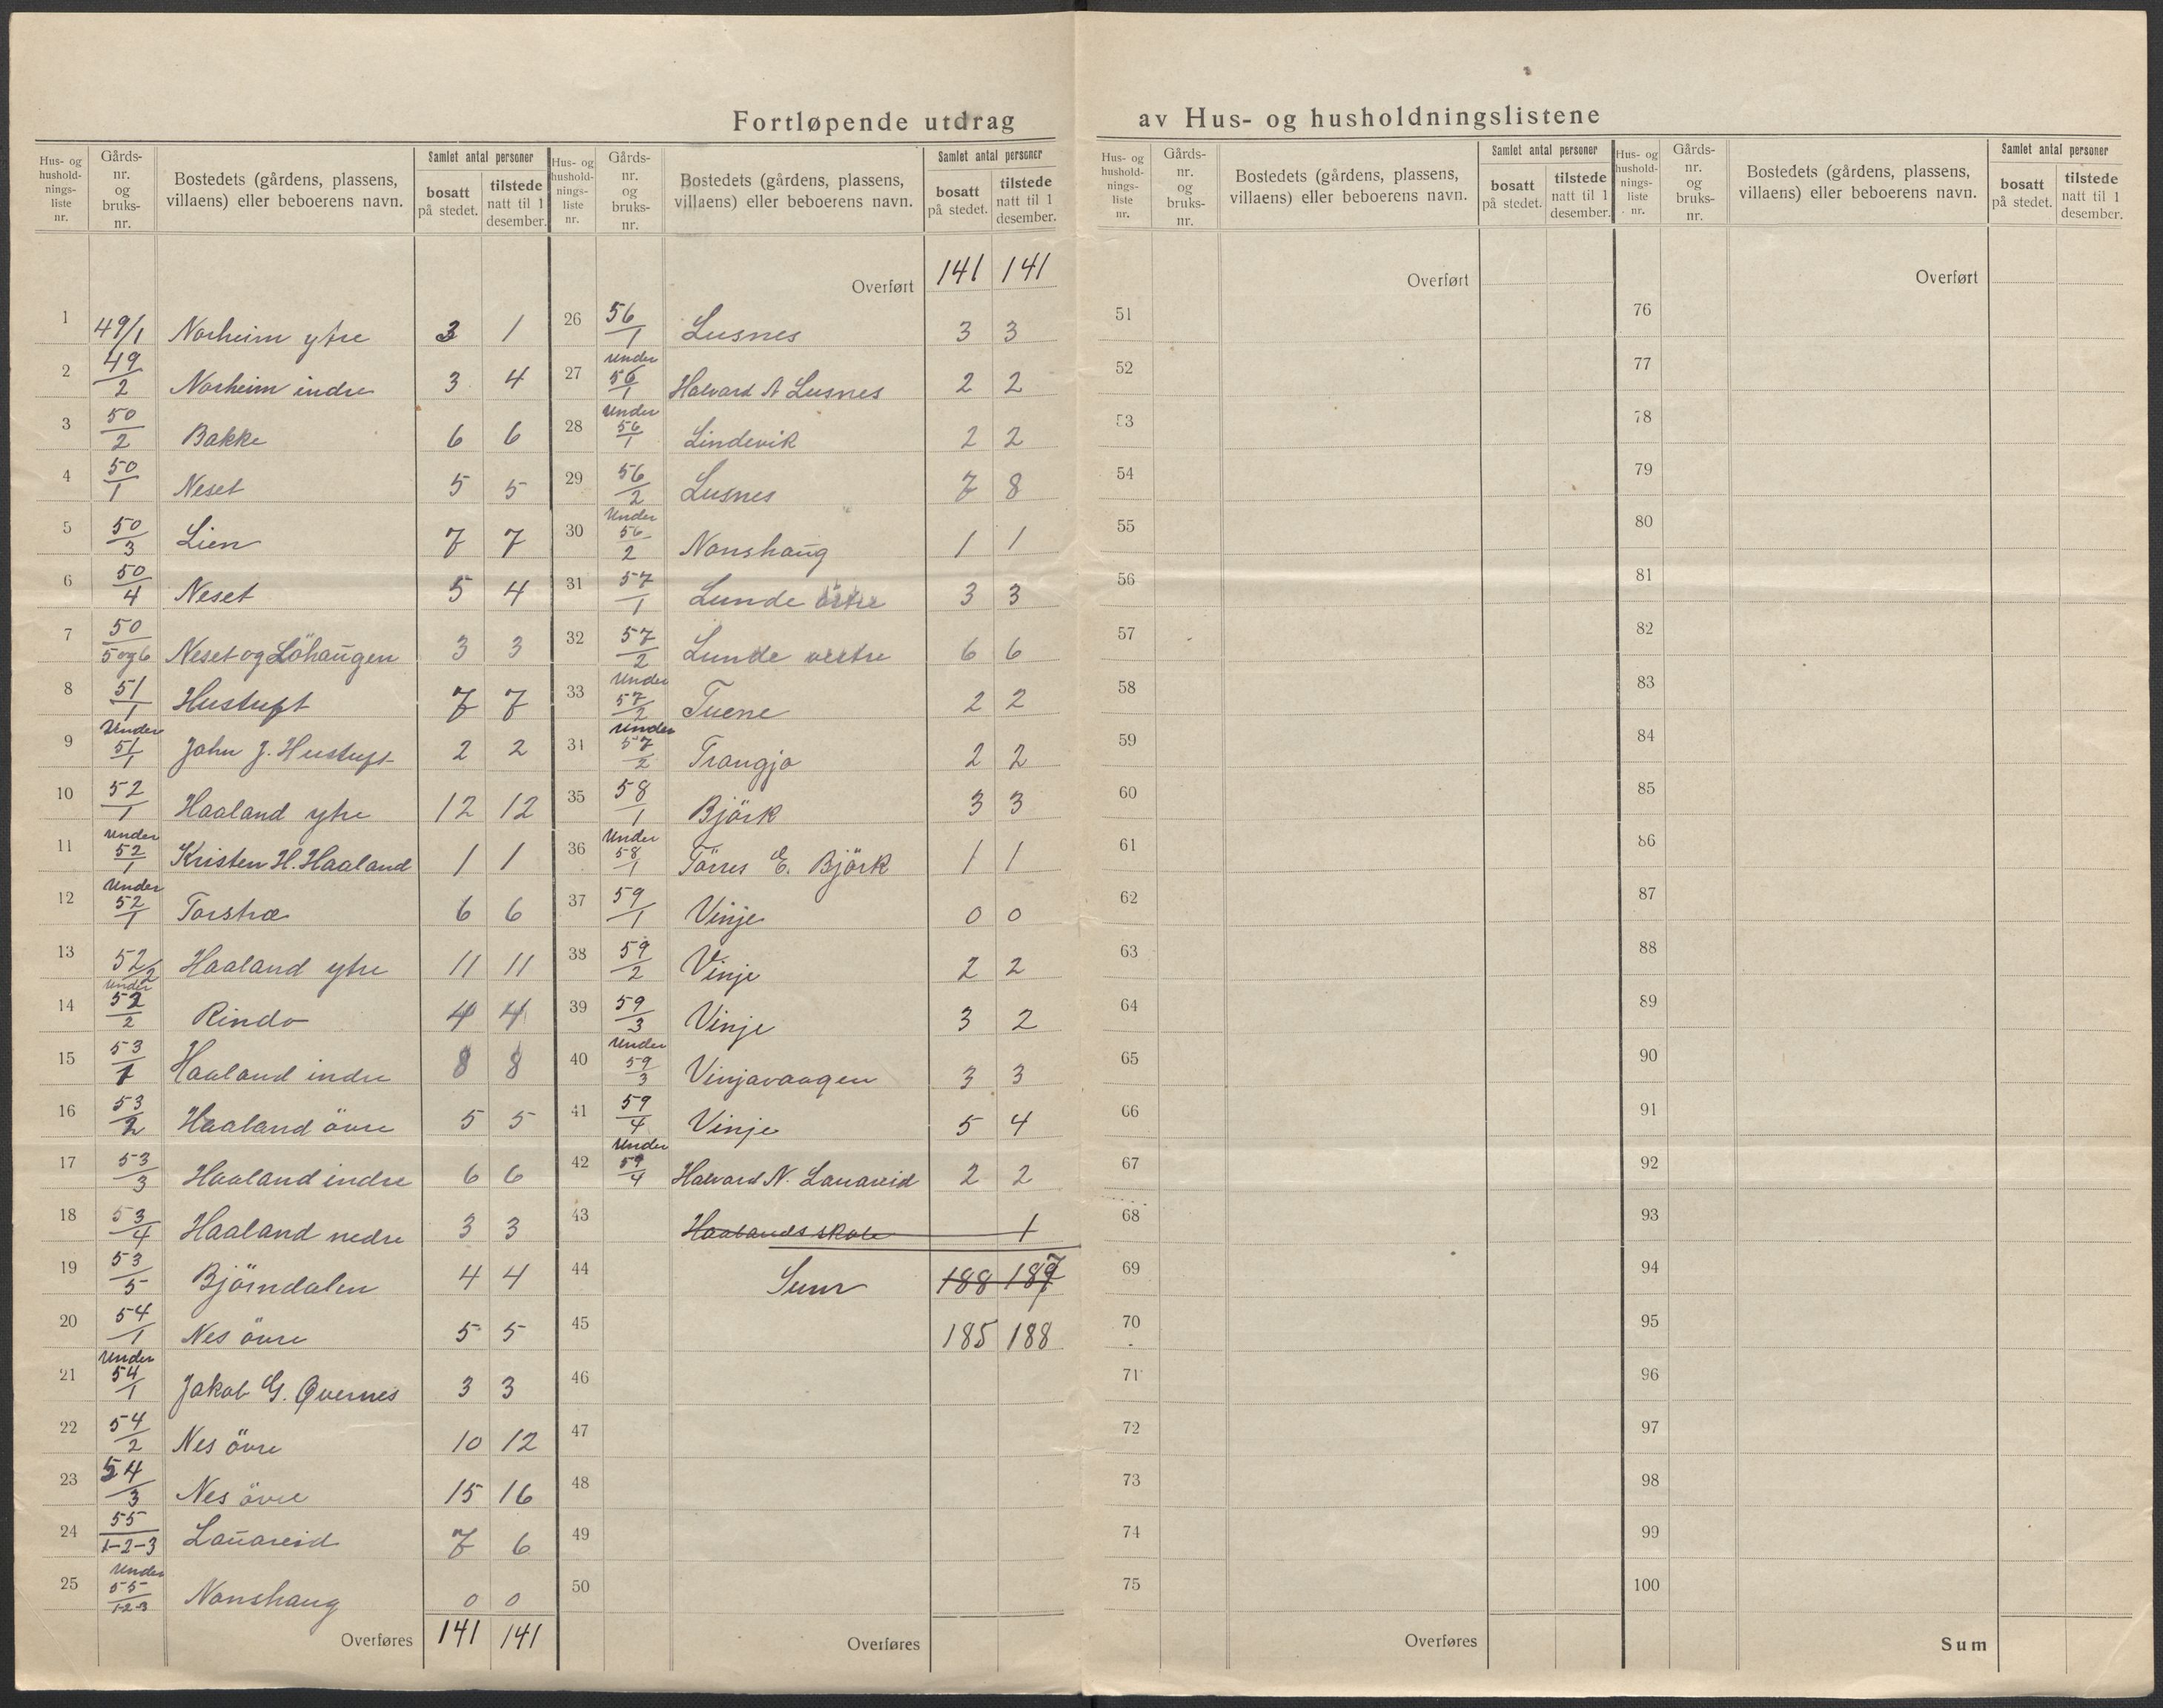 Fortløpende utdrag av Hus- og husholdningslistene
Hus- og husholdnings-liste nr. | Gårds-nr. og bruks-nr. | Bostedets (gårdens, plassens, villaens) eller beboerens navn. | Samlet antal personer | bosatt på stedet. | tilstede natt til 1 desember.
1 49/1 Norheim ytre 3 1
2 49/2 Norheim indre 3 4
3 50/2 Bakke 6 6
4 50/1 Neset 5 5
5 50/3 Lien 7 7
6 50/4 Neset 5 4
7 50/5 og 6 Neset og Löhaugen 3 3
8 51/1 Hustuft 7 7
9 Under 51/1 John J. Hustuft 2 2
10 52/1 Haaland ytre 12 12
11 Under 52/1 Kristen H. Haaland 1 1
12 Under 52/1 Torstræ 6 6
13 52/2 Haaland ytre 11 11
14 Under 52/2 Rindo 4 4
15 53/1 Haaland indre 8 8
16 53/2 Haaland övre 5 5
17 53/3 Haaland indre 6 6
18 53/4 Haaland nedre 3 3
19 53/5 Björndalen 4 4
20 54/1 Nes övre 5 5
21 Under 54/1 Jakob G. Øvernes 3 3
22 54/2 Nes övre 10 12
23 54/3 Nes övre 15 16
24 55/1-2-3 Lauareid 7 6
25 Under 55/1-2-3 Nonshaug 0 0
Overføres 141 141
Hus- og husholdnings-liste nr. | Gårds-nr. og bruks-nr. | Bostedets (gårdens, plassens, villaens) eller beboerens navn. | Samlet antal personer | bosatt på stedet. | tilstede natt til 1 desember.
Overført 141 141
26 56/1 Lusnes 3 3
27 Under 56/1 Halvard A Lusnes 2 2
28 Under 56/1 Lindevik 2 2
29 56/2 Lusnes 7 8
30 Under 56/2 Nonshaug 1 1
31 57/1 Lunde östre 3 3
32 57/2 Lunde vestre 6 6
33 Under 57/2 Tuene 2 2
34 Under 57/2 Trangjo 2 2
35 58/1 Björk 3 3
36 Under 58/1 Törres E. Björk 1 1
37 59/1 Vinje 0 0
38 59/2 Vinje 2 2
39 59/3 Vinje 3 2
40 Under 59/3 Vinjavaagen 3 3
41 59/4 Vinje 5 4
42 Under 59/4 Halvard N. Lauareid 2 2
43 Haalands skole 1
44 Sum 188 187
45 185 188
46
47
48
49
50
Overføres
Hus- og husholdnings-liste nr. | Gårds-nr. og bruks-nr. | Bostedets (gårdens, plassens, villaens) eller beboerens navn. | Samlet antal personer | bosatt på stedet. | tilstede natt til 1 desember.
Overført
51
52
53
54
55
56
57
58
59
60
61
62
63
64
65
66
67
68
69
70
71
72
73
74
75
Overføres
Hus- og husholdnings-liste nr. | Gårds-nr. og bruks-nr. | Bostedets (gårdens, plassens, villaens) eller beboerens navn. | Samlet antal personer | bosatt på stedet. | tilstede natt til 1 desember.
Overført
76
77
78
79
80
81
82
83
84
85
86
87
88
89
90
91
92
93
94
95
96
97
98
99
100
Sum